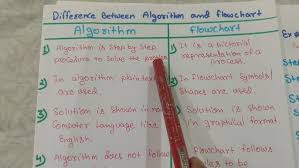 Difference Between Algorithm and flowchart
Algorithm
Flowchart
1) Algorithm is step by step
procedure to solve the
1) It is a pictorial
representation of a
process.
2) In algorithm plaintext
are used.
2) In flowchart Symbols/
Shapes are used.
3) Solution is shown in non
Computer language like
English.
3) Solution is shown
in graphical format.
4) Algorithm does not follow
to